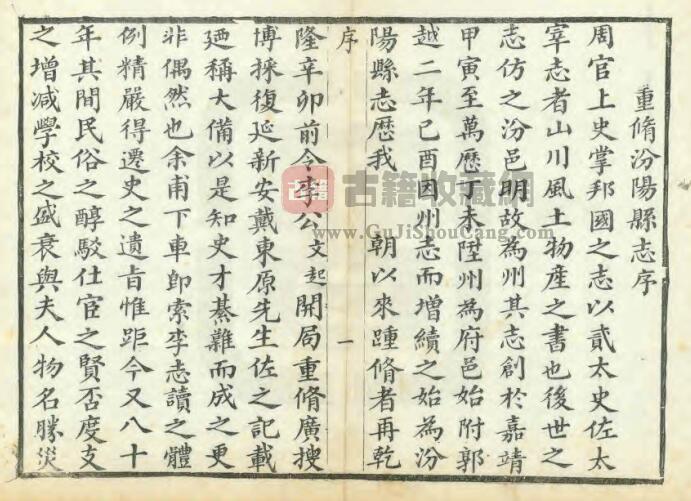 重脩汾陽縣志序
周官上史掌邦國之志以貳太史佐太
宰志者山川風土物産之書也後世之
志仿之汾邑明故為州其志創於嘉靖
甲寅至萬歷丁未陞州為府邑始附郭
越二年己酉因州志而增續之始為汾
陽縣志歷我 朝以來踵脩者再乾
序 一
隆辛卯前令李公文起開局重脩廣搜
博採復延新安戴東原先生佐之記載
廼稱大備以是知史才綦難而成之更
非偶然也余甫下車即索李志讀之體
例精嚴得遷史之遺旨惟距今又八十
年其間民俗之醇駁仕宦之賢否度支
之增減學校之盛衰與夫人物名勝災
古籍收藏網
www.GuJiShouCang.com